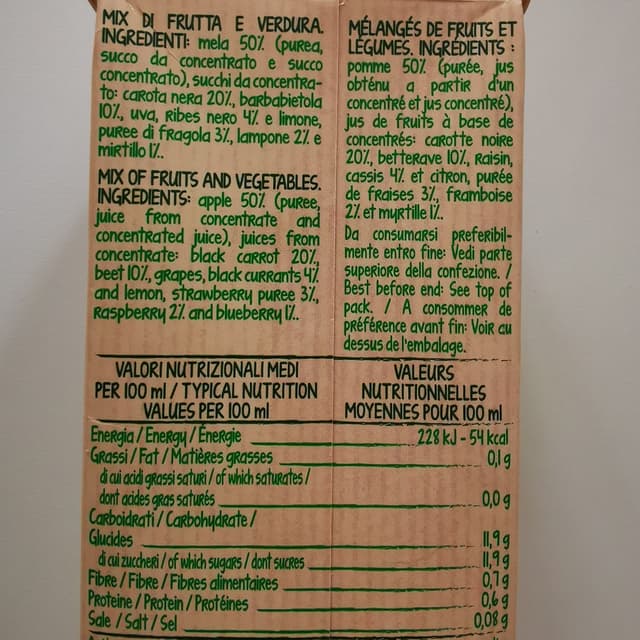 MIX DI FRUTTA E VERDURA.
INGREDIENTI: mela 50% (purea,
succo da concentrato e succo
concentrato), succhi da concentra-
to: carota nera 20%, barbabietola
10%, uva, ribes nero 4% e limone,
puree di fragola 3%, lampone 2% e
mirtillo 1%..
MIX OF FRUITS AND VEGETABLES.
INGREDIENTS: apple 50% (puree,
juice from concentrate and
concentrated juice), juices from
concentrate: black carrot 20%,
beet 10%, grapes, black currants 4%
and lemon, strawberry puree 3%,
raspberry 2% and blueberry 1%..
MÉLANGÉS DE FRUITS ET
LÉGUMES. INGRÉDIENTS :
pomme 50% (purée, jus
obténu a partir d'un
concentré et jus concentré),
jus de fruits à base de
concentrés: carotte noire
20%, betterave 10%, raisin,
cassis 4% et citron, purée
de fraises 3%, framboise
2% et myrtille 1%.
Da consumarsi preferibil-
mente entro fine: Vedi parte
superiore della confezione. /
Best before end: See top of
pack. / A consommer de
préférence avant fin: Voir au
dessus de l'embalage.
VALORI NUTRIZIONALI MEDI
PER 100 ml / TYPICAL NUTRITION
VALUES PER 100 ml
VALEURS
NUTRITIONNELLES
MOYENNES POUR 100 ml
Energia / Energy / Énergie 228 kJ - 54 kcal
Grassi / Fat / Matières grasses 0,1 g
di cui acidi grassi saturi / of which saturates /
dont acides gras saturés 0,0 g
Carboidrati / Carbohydrate /
Glucides 11,9 g
di cui zuccheri / of which sugars / dont sucres 11,9 g
Fibre / Fibre / Fibres alimentaires 0,7 g
Proteine / Protein / Protéines 0,6 g
Sale / Salt / Sel 0,08 g